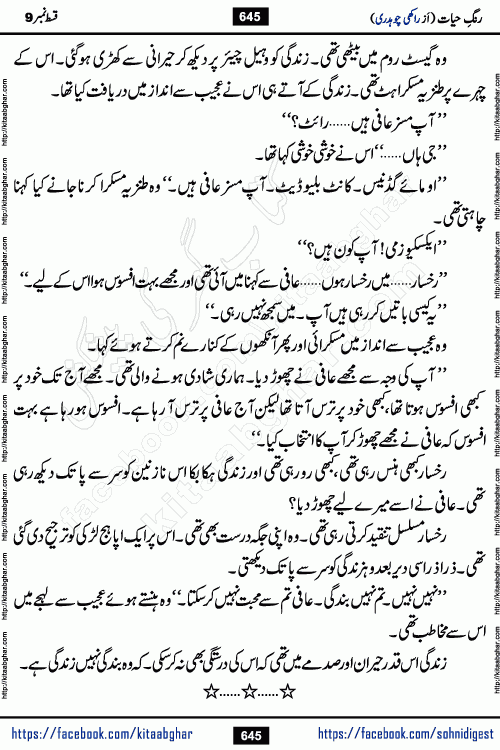 رنگِ حیات (از راکھی چوہدری)
645
قسط نمبر 9
وہ گیسٹ روم میں بیٹھی تھی۔ زندگی کو وہیل چیئر پر دیکھ کر حیرانی سے کھڑی ہوگئی۔ اس کے
چہرے پر طنزیہ مسکراہٹ تھی۔ زندگی کے آتے ہی اس نے عجیب سے انداز میں دریافت کیا تھا۔
’’آپ مسز عافی ہیں......رائٹ؟‘‘
’’جی ہاں......‘‘ اس نے خوشی خوشی کہا تھا۔
’’او مائے گڈنیس۔ کانٹ بلیو ڈیٹ۔ آپ مسز عافی ہیں۔‘‘ وہ طنزیہ مسکرا کر نا جانے کیا کہنا
چاہتی تھی۔
’’ایکسکیوزمی! آپ کون ہیں؟‘‘
’’رخسار......میں رخسار ہوں......عافی سے کہنا میں آئی تھی اور مجھے بہت افسوس ہوا اس کے لیے۔‘‘
’’یہ کیسی باتیں کر رہی ہیں آپ۔ میں سمجھ نہیں رہی۔‘‘
وہ عجیب سے انداز میں مسکرائی اور پھر آنکھوں کے کنارے نم کرتے ہوئے کہا۔
’’آپ کی وجہ سے مجھے عافی نے چھوڑ دیا۔ ہماری شادی ہونے والی تھی۔ مجھے آج تک خود پر
کبھی افسوس ہوتا تھا، کبھی خود پر ترس آتا تھا لیکن آج عافی پر ترس آ رہا ہے۔ افسوس ہو رہا ہے بہت
افسوس کہ عافی نے مجھے چھوڑ کر آپ کا انتخاب کیا۔‘‘
رخسار کبھی ہنس رہی تھی، کبھی رو رہی تھی اور زندگی ہکا بکا اس نازنین کو سر سے پا تک دیکھ رہی
تھی۔ عافی نے اسے میرے لیے چھوڑ دیا؟
رخسار مسلسل تنقید کرتی رہی تھی۔ وہ اپنی جگہ درست بھی تھی۔ اس پر ایک اپاہج لڑکی کو ترجیح دی گئی
تھی۔ ذرا ذرا سی دیر بعد وہ زندگی کو سر سے پا تک دیکھتی۔
’’نہیں نہیں۔ تم نہیں بندگی۔ عافی تم سے محبت نہیں کر سکتا۔‘‘ وہ ہنستے ہوئے عجیب سے لہجے میں
اس سے مخاطب تھی۔
زندگی اس قدر حیران اور صدمے میں تھی کہ اس کی درستگی بھی نہ کر سکی۔ کہ وہ بندگی نہیں زندگی ہے۔
☆......☆......☆
https://facebook.com/kitaabghar
645
https://facebook.com/sohnidigest
http://kitaabghar.com
http://kitaabghar.com
کتاب گھر کی پیشکش
kitaabghar.com
facebook.com/kitaabghar